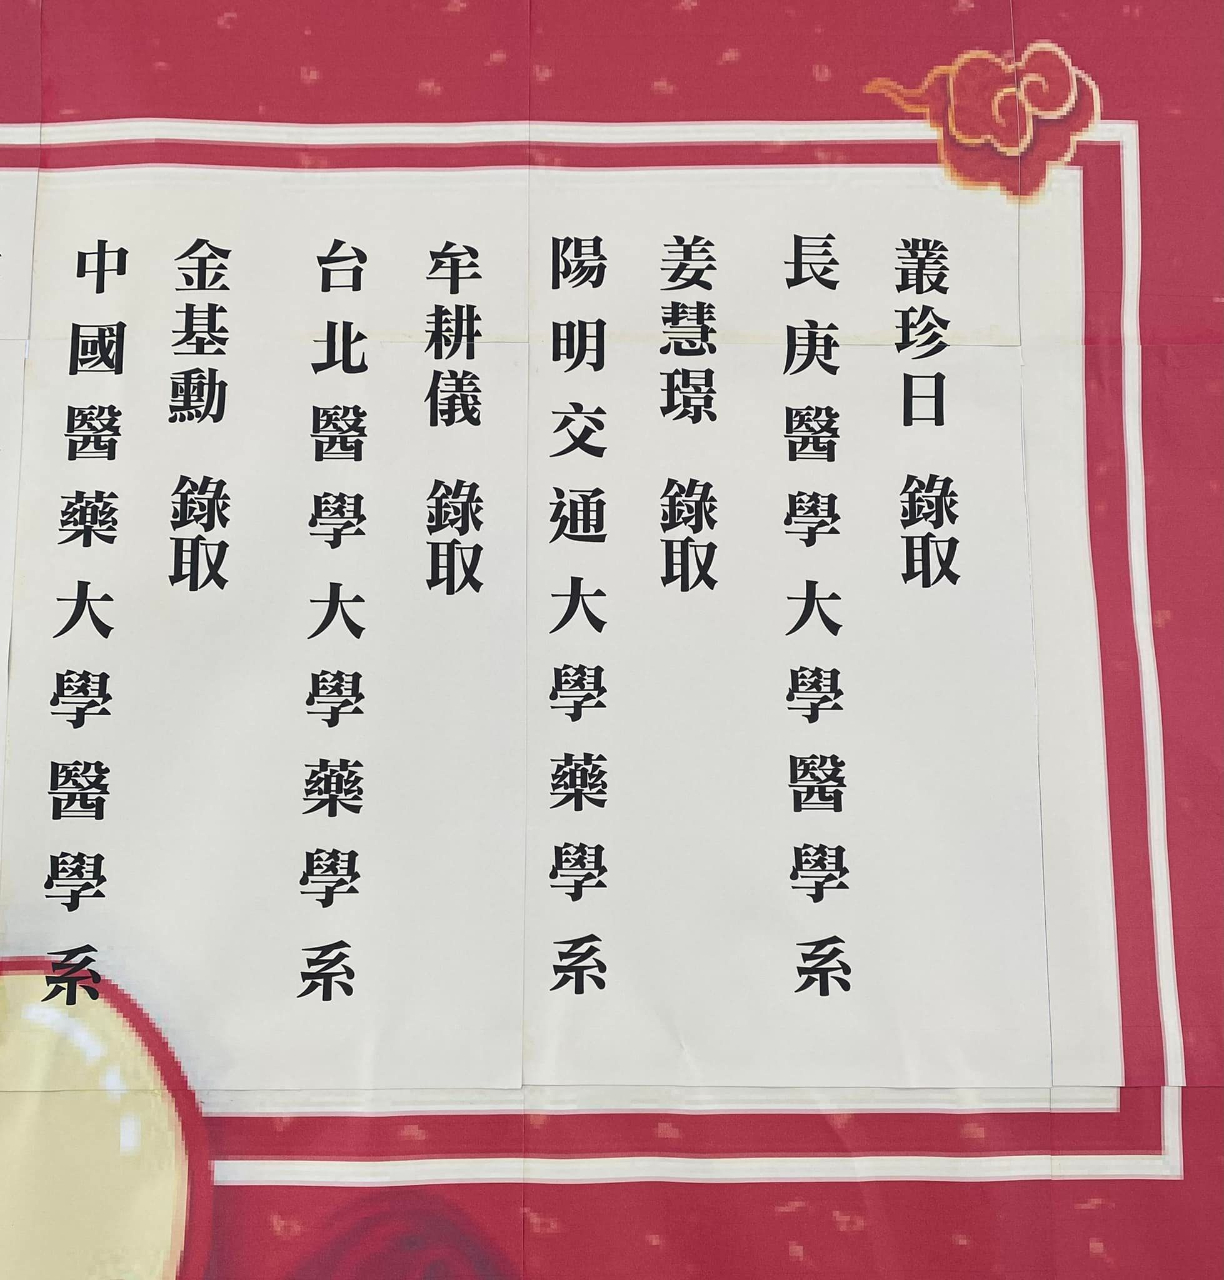 叢珍日 錄取
長庚醫學大學醫學系
姜慧璟 錄取
陽明交通大學藥學系
牟耕儀 錄取
台北醫學大學藥學系
金基勳 錄取
中國醫藥大學醫學系